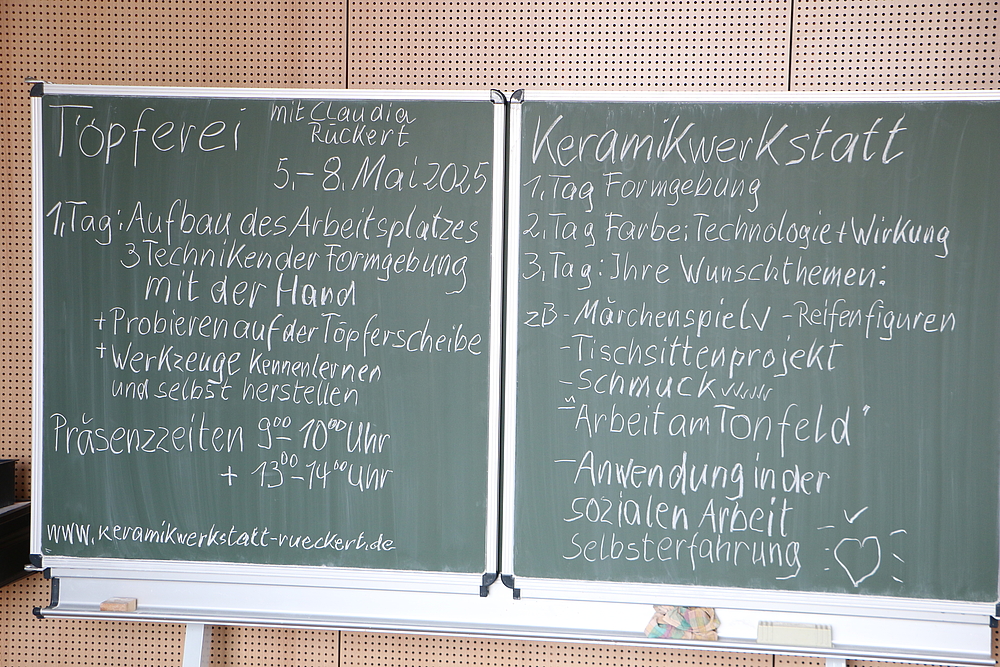 Töpferei mit Claudia
Rückert
5.-8. Mai 2025
1. Tag: Aufbau des Arbeitsplatzes
3 Techniken der Formgebung
mit der Hand
+ Probieren auf der Töpferscheibe
+ Werkzeuge kennenlernen
und selbst herstellen
Präsenzzeiten 9⁰⁰-10⁰⁰ Uhr
+ 13⁰⁰-14⁰⁰ Uhr
www.keramikwerkstatt-rueckert.de
Keramikwerkstatt
1. Tag Formgebung
2. Tag Farbe: Technologie + Wirkung
3. Tag: Ihre Wunschthemen:
zB - Märchenspiel √ - Reifenfiguren
- Tischsittenprojekt
- Schmuck
- "Arbeit am Tonfeld"
- Anwendung in der
sozialen Arbeit
Selbsterfahrung